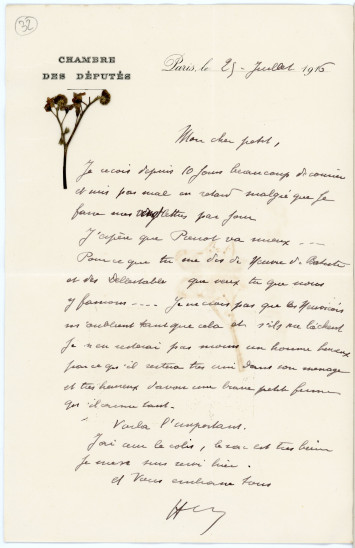 32
CHAMBRE
DES DÉPUTÉS
Paris, le 25 Juillet 1916
Mon cher petit,
Je reçois depuis 10 jours beaucoup de courrier
et suis pas mal en retard malgré que je
fasse mes vingt lettres par jour
J'espère que Parrot va mieux ---
Pour ce que tu me dis de
et des que veux tu que nous
y fassions ---- Je ne crois pas que les
m'oublient tant que cela et s'ils me lâchent
Je n'en resterai pas moins un homme heureux
parce qu'il restera très uni dans son ménage
et très heureux d'avoir une brave petite femme
qu'il aime tant.
Voilà l'important.
J'ai eu le colis, le sac est très bien
Je m'en suis servi hier.
et vous embrasse tous